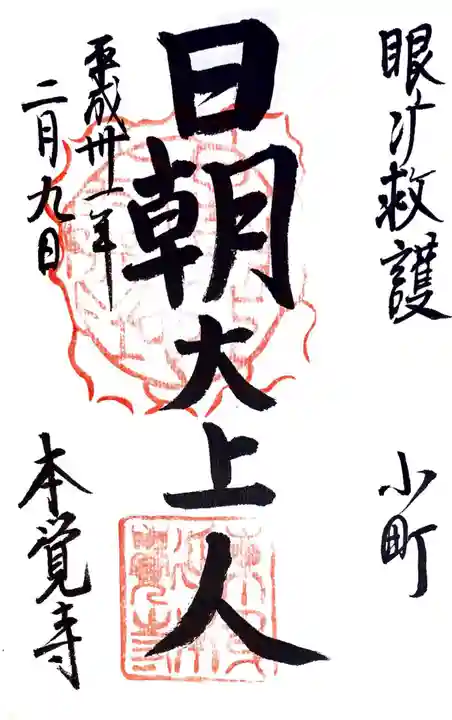 眼疾救護
小町
日朝大上人
平成卅一年
二月九日
本覚寺